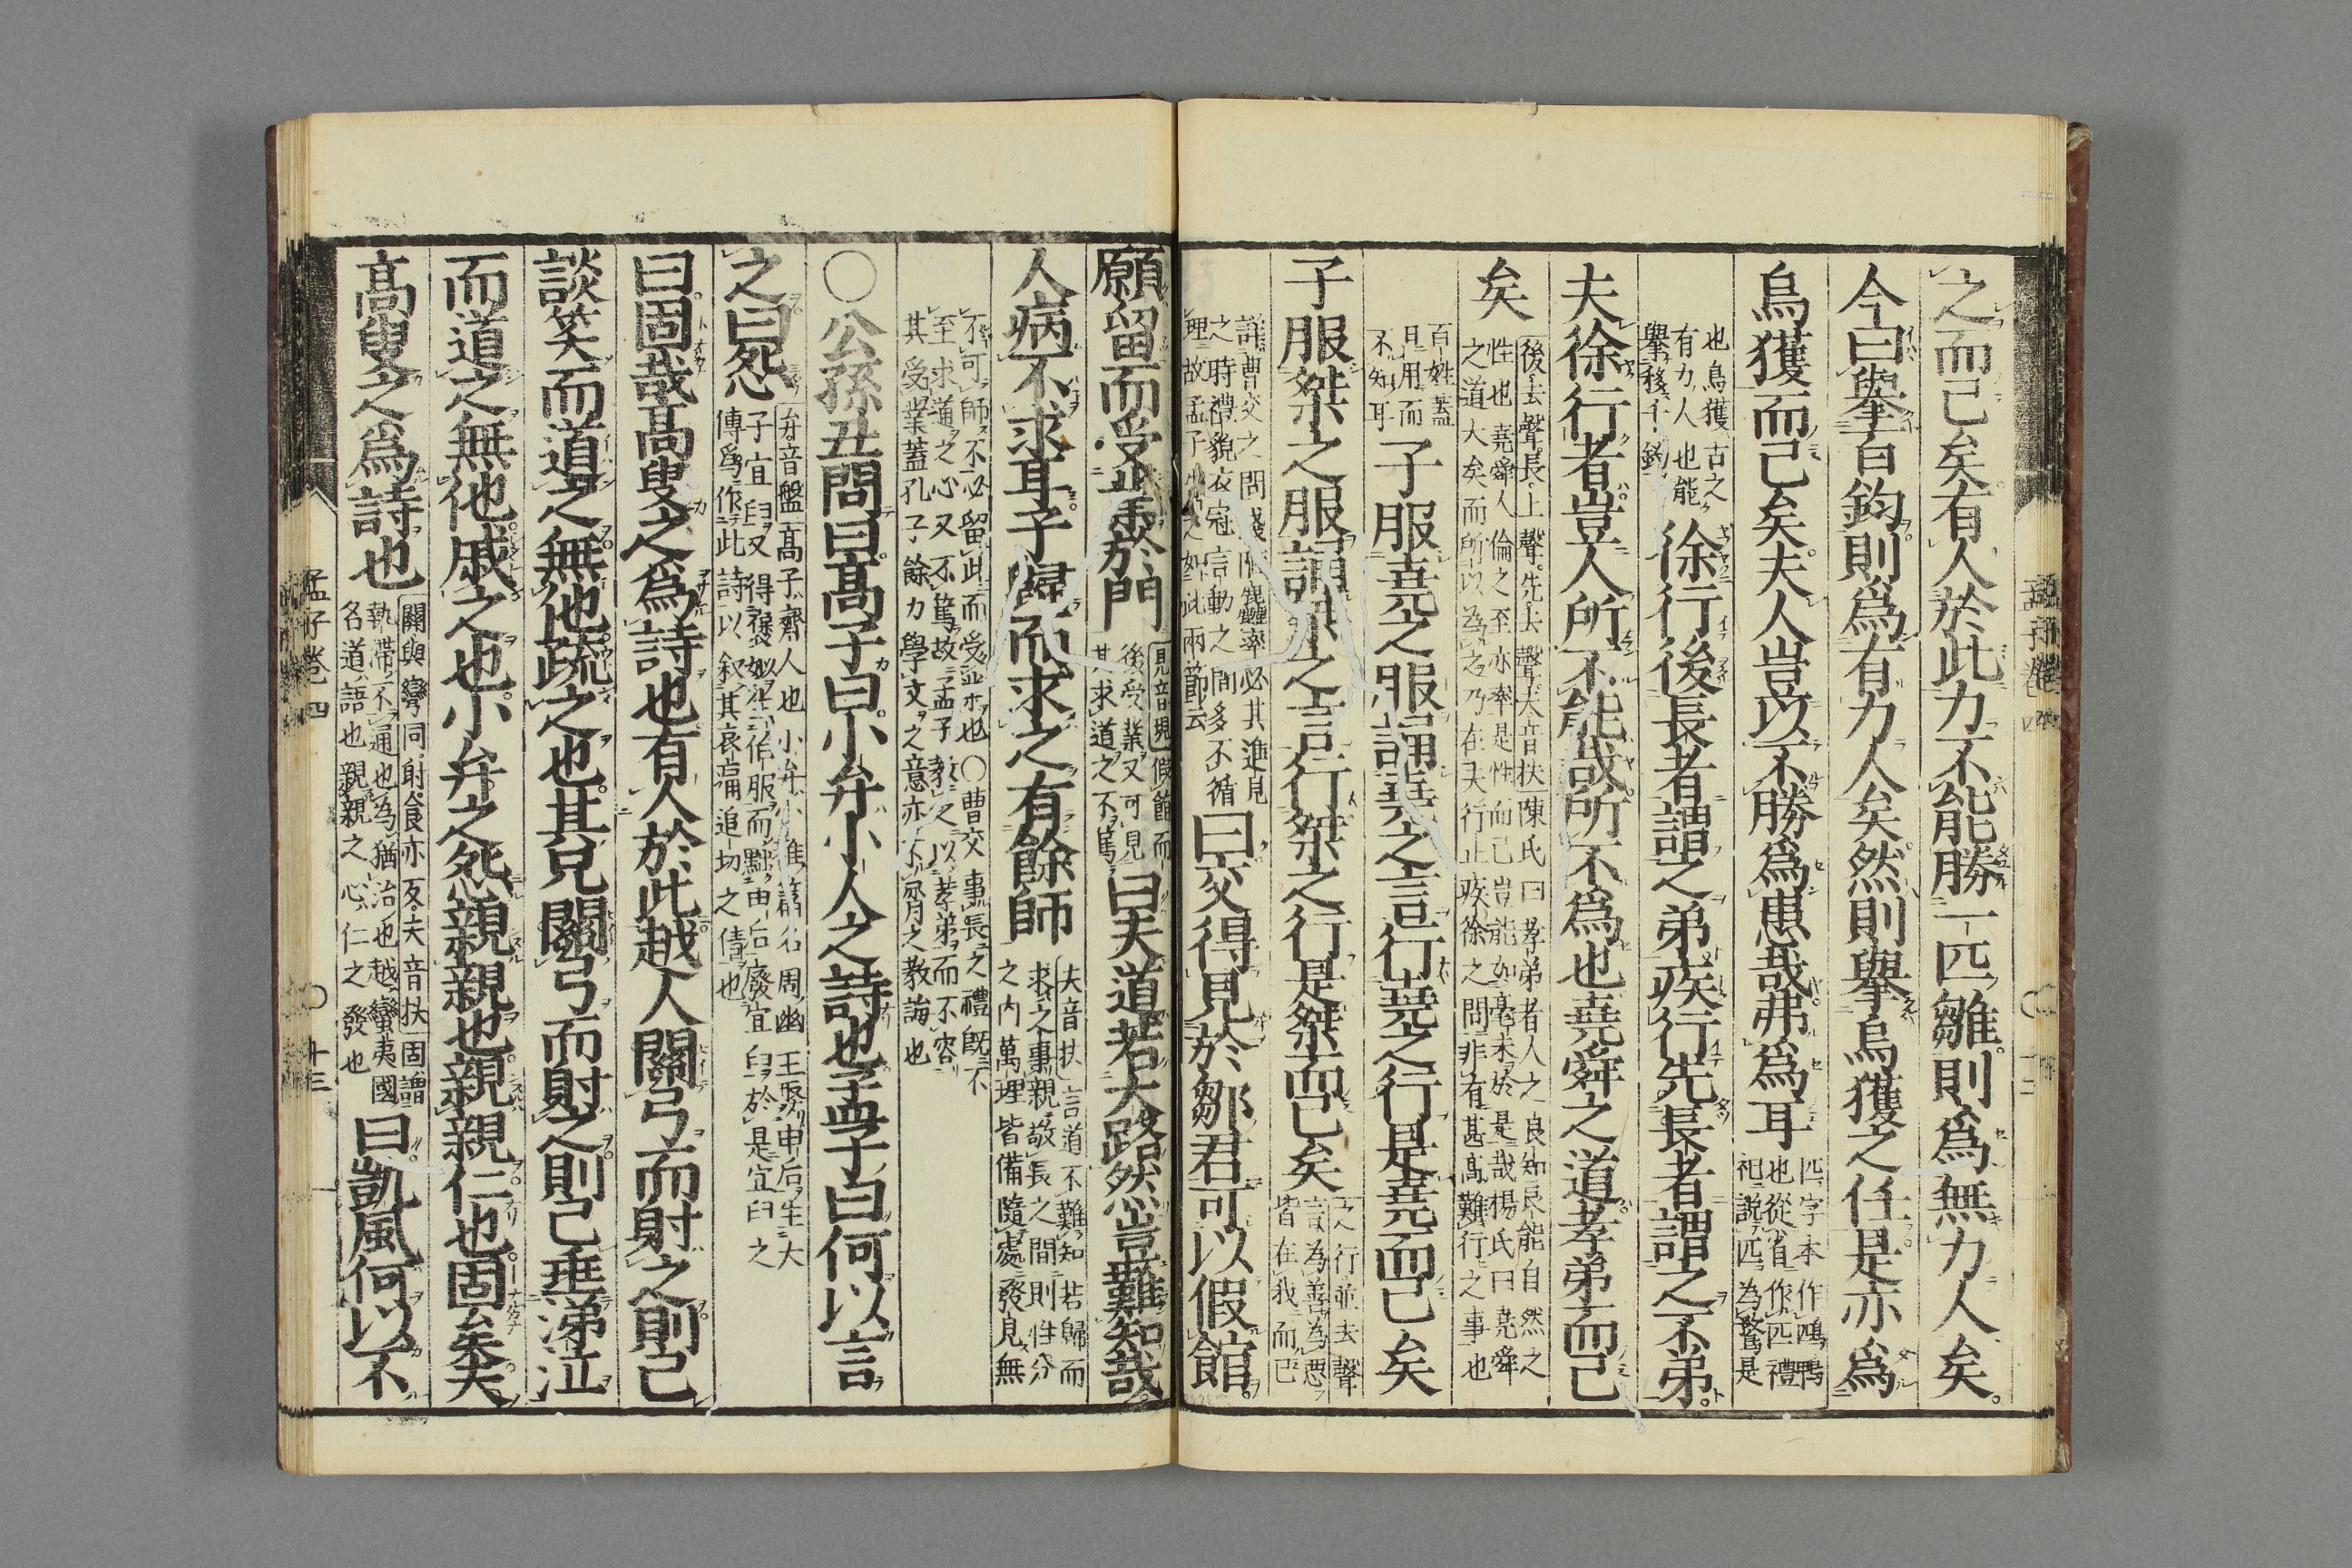 之而已矣有人於此力不能勝一匹雛則爲無力人矣
今曰擧百鈞則爲有力人矣然則擧烏獲之任是亦爲
烏獲而已矣夫人豈以不勝爲患哉弗爲耳
匹字本作鴄鴨
也從省作匹禮
記說匹爲鶩是
也烏獲古之
有力人也能
擧移千鈞
徐行後長者謂之弟疾行先長者謂之不弟
夫徐行者豈人所不能哉所不爲也堯舜之道孝弟而已
矣
後去聲長上聲先去聲夫音扶陳氏曰孝弟者人之良知良能自然之
性也堯舜人倫之至亦率是性而已豈能加毫末於是哉楊氏曰堯舜
之道大矣而所以為之乃在夫行止疾徐之間非有甚高難行之事也
百姓蓋
日用而
不知耳
子服堯之服誦堯之言行堯之行是堯而已矣
子服桀之服誦桀之言行桀之行是桀而已矣
之行並去聲
言為善為惡
皆在我而已
詳曹交之問淺陋麤率必其進見
之時禮貌衣冠言動之間多不循
理故孟子告之如此兩節云
曰交得見於鄒君可以假館
願留而受業於門
見音現假館而
後受業又可見
其求道之不篤
曰夫道若大路然豈難知哉
人病不求耳子歸而求之有餘師
夫音扶言道不難知若歸而
求之事親敬長之間則性分
之内萬理皆備隨處發見無
不可師不必留此而受業也〇曹交事長之禮既不
至求道之心又不篤故孟子教之以孝弟而不容
其受業蓋孔子餘力學文之意亦不屑之教誨也
〇公孫丑問曰高子曰小弁小人之詩也孟子曰何以言
之曰怨
弁音盤高子齊人也小弁小雅篇名周幽王娶申后生大
子宜臼又得褒姒生伯服而黜申后廢宜臼於是宜臼之
傳爲作此詩以叙其哀痛迫切之情也
曰固哉高叟之爲詩也有人於此越人關弓而射之則己
談笑而道之無他疏之也其兄關弓而射之則己垂涕泣
而道之無他戚之也小弁之怨親親也親親仁也固矣夫
高叟之爲詩也
關與彎同射食亦反夫音扶固謂
執滯不通也為猶治也越蠻夷國
名道語也親親之心仁之發也
曰凱風何以不
孟子卷四
〇
十三